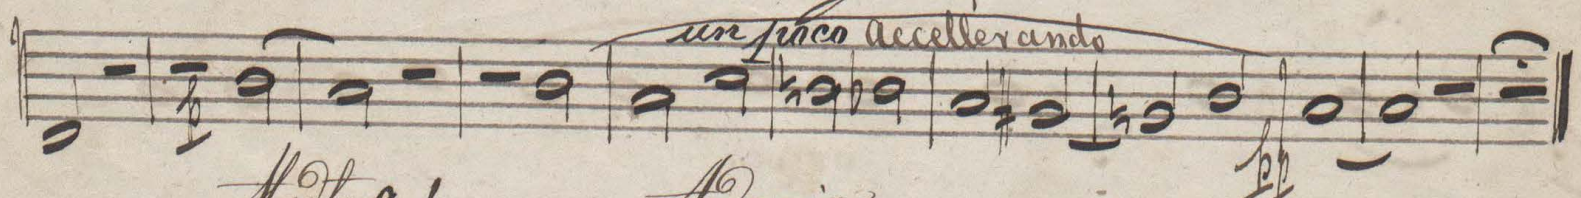 un poco accellerando
p
pp